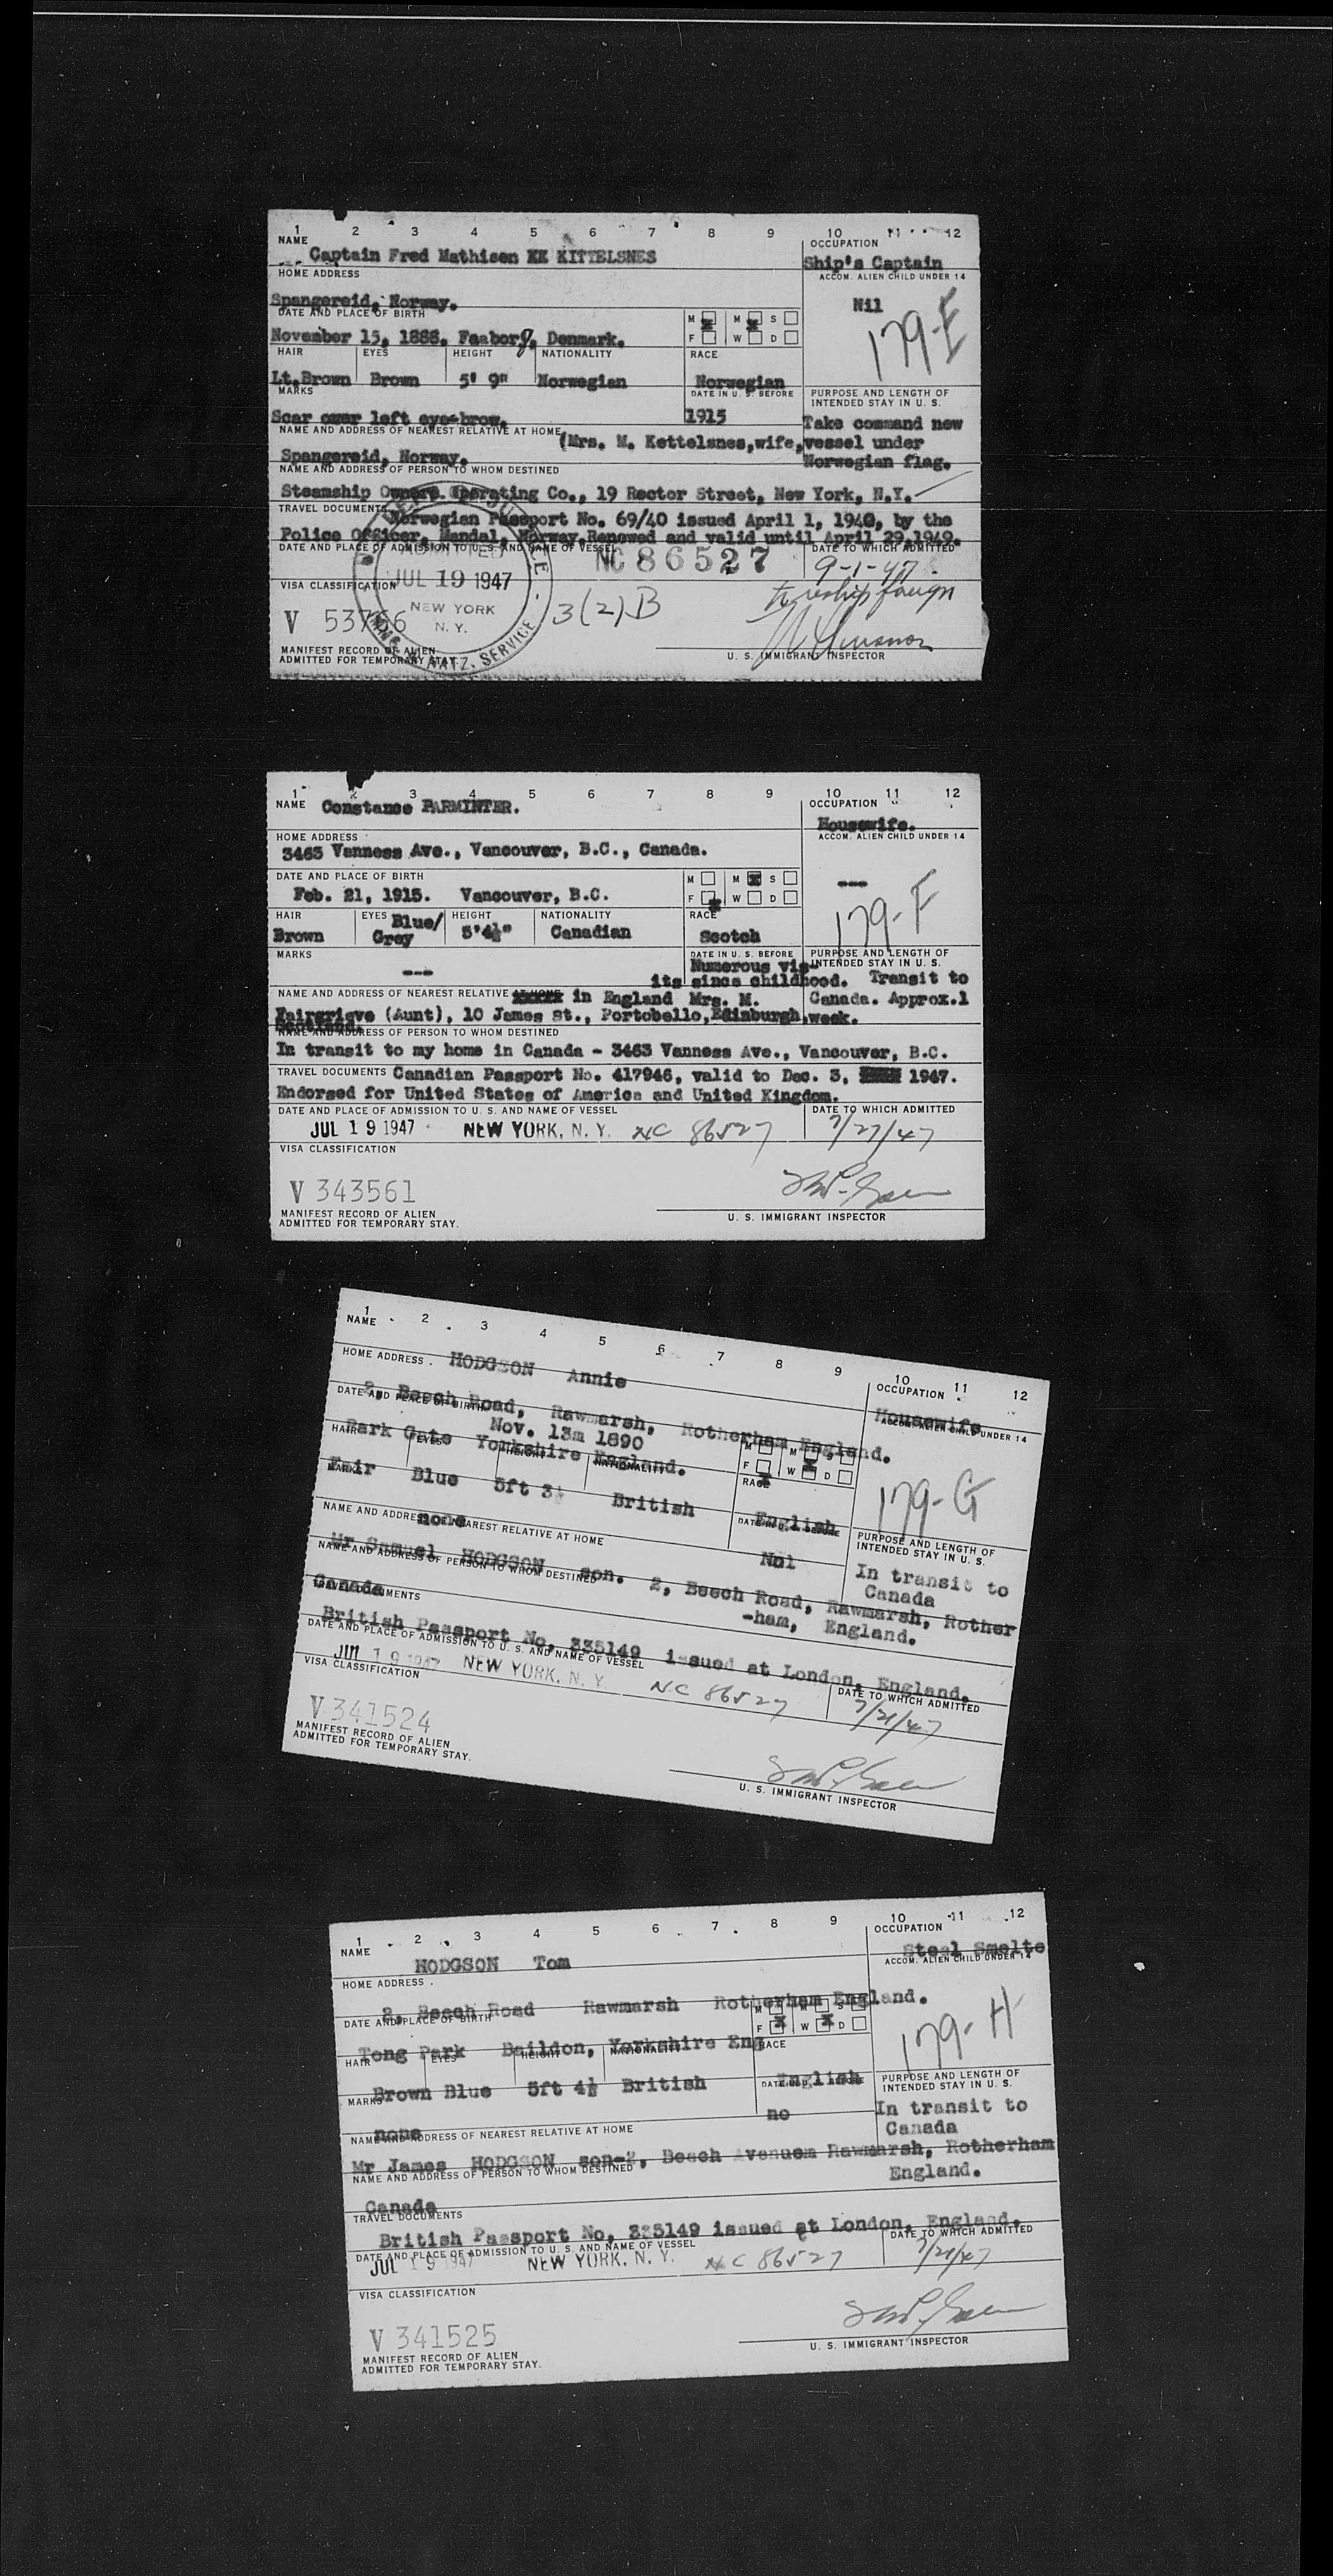 1 2 3 4 5 6 7 8 9 10 11 12
NAME OCCUPATION
Captain Fred Mathisen KK KITTELSNES Ship's Captain
HOME ADDRESS ACCOM. ALIEN CHILD UNDER 14
Spangereid, Norway. Nil
DATE AND PLACE OF BIRTH M M S 179-E
November 15, 1888, Faaborg, Denmark. F W D
HAIR EYES HEIGHT NATIONALITY RACE
Lt.Brown Brown 5' 9" Norwegian Norwegian
MARKS DATE IN U. S. BEFORE PURPOSE AND LENGTH OF INTENDED STAY IN U. S.
Scar over left eye-brow. 1915 Take command new
NAME AND ADDRESS OF NEAREST RELATIVE AT HOME (Mrs. M. Kettelsnes, wife, vessel under
Spangereid, Norway. Norwegian flag.
NAME AND ADDRESS OF PERSON TO WHOM DESTINED
Steamship Owners Operating Co., 19 Rector Street, New York, N.Y.
TRAVEL DOCUMENTS Norwegian Passport No. 69/40 issued April 1, 1940, by the
Police Officer, Mandal, Norway.Renewed and valid until April 29,1949.
DATE AND PLACE OF ADMISSION TO U. S. AND NAME OF VESSEL NC 86527 DATE TO WHICH ADMITTED
9-1-47
VISA CLASSIFICATION JUL 19 1947 foreign
V 53766 NEW YORK N. Y. 3(2)B
NATZ. SERVICE
MANIFEST RECORD OF ALIEN
ADMITTED FOR TEMPORARY STAY. U. S. IMMIGRANT INSPECTOR
1 2 3 4 5 6 7 8 9 10 11 12
NAME Constance PARMINTER. OCCUPATION
Housewife.
HOME ADDRESS ACCOM. ALIEN CHILD UNDER 14
3463 Vanness Ave., Vancouver, B.C., Canada.
DATE AND PLACE OF BIRTH M M S ---
Feb. 21, 1915. Vancouver, B.C. F W D 179-F
HAIR EYES Blue/ HEIGHT NATIONALITY RACE
Brown Grey 5'4½" Canadian Scotch
MARKS DATE IN U. S. BEFORE PURPOSE AND LENGTH OF INTENDED STAY IN U. S.
--- Numerous vis-
its since childhood. Transit to
NAME AND ADDRESS OF NEAREST RELATIVE in England Mrs. M. Canada. Approx.1
Fairgrieve (Aunt), 10 James St., Portobello, Edinburgh, week.
Scotland.
NAME AND ADDRESS OF PERSON TO WHOM DESTINED
In transit to my home in Canada - 3463 Vanness Ave., Vancouver, B.C.
TRAVEL DOCUMENTS Canadian Passport No. 417946, valid to Dec. 3, 1947.
Endorsed for United States of America and United Kingdom.
DATE AND PLACE OF ADMISSION TO U. S. AND NAME OF VESSEL DATE TO WHICH ADMITTED
JUL 19 1947 NEW YORK, N. Y. NC 86527 7/27/47
VISA CLASSIFICATION
V 343561
MANIFEST RECORD OF ALIEN
ADMITTED FOR TEMPORARY STAY. U. S. IMMIGRANT INSPECTOR
1 2 3 4 5 6 7 8 9 10 11 12
NAME OCCUPATION
HODGSON Annie Housewife
HOME ADDRESS ACCOM. ALIEN CHILD UNDER 14
2, Beech Road, Rawmarsh, Rotherham England.
DATE AND PLACE OF BIRTH Nov. 13m 1890 M M S
Park Gate Yorkshire England. F W D 179-G
HAIR EYES HEIGHT NATIONALITY RACE
Fair Blue 5ft 3½ British English
MARKS DATE IN U. S. BEFORE PURPOSE AND LENGTH OF INTENDED STAY IN U. S.
none Nol In transit to
NAME AND ADDRESS OF NEAREST RELATIVE AT HOME Canada
Mr Samuel HODGSON son. 2, Beech Road, Rawmarsh, Rother
-ham, England.
NAME AND ADDRESS OF PERSON TO WHOM DESTINED
Canada
TRAVEL DOCUMENTS
British Passport No. 335149 issued at London, England.
DATE AND PLACE OF ADMISSION TO U. S. AND NAME OF VESSEL DATE TO WHICH ADMITTED
JUL 19 1947 NEW YORK, N. Y. NC 86527 7/21/47
VISA CLASSIFICATION
V 341524
MANIFEST RECORD OF ALIEN
ADMITTED FOR TEMPORARY STAY. U. S. IMMIGRANT INSPECTOR
1 2 3 4 5 6 7 8 9 10 11 12
NAME OCCUPATION
HODGSON Tom Steel Smelte
HOME ADDRESS ACCOM. ALIEN CHILD UNDER 14
2, Beech Road Rawmarsh Rotherham England.
DATE AND PLACE OF BIRTH M M S
F W D 179-H
Tong Park Baildon, Yorkshire Eng
HAIR EYES HEIGHT NATIONALITY RACE
Brown Blue 5ft 4½ British English
MARKS DATE IN U. S. BEFORE PURPOSE AND LENGTH OF INTENDED STAY IN U. S.
none no In transit to
NAME AND ADDRESS OF NEAREST RELATIVE AT HOME Canada
Mr James HODGSON son-2, Beech Avenuem Rawmarsh, Rotherham
England.
NAME AND ADDRESS OF PERSON TO WHOM DESTINED
Canada
TRAVEL DOCUMENTS
British Passport No. 335149 issued at London, England.
DATE AND PLACE OF ADMISSION TO U. S. AND NAME OF VESSEL DATE TO WHICH ADMITTED
JUL 19 1947 NEW YORK, N. Y. NC 86527 7/21/47
VISA CLASSIFICATION
V 341525
MANIFEST RECORD OF ALIEN
ADMITTED FOR TEMPORARY STAY. U. S. IMMIGRANT INSPECTOR